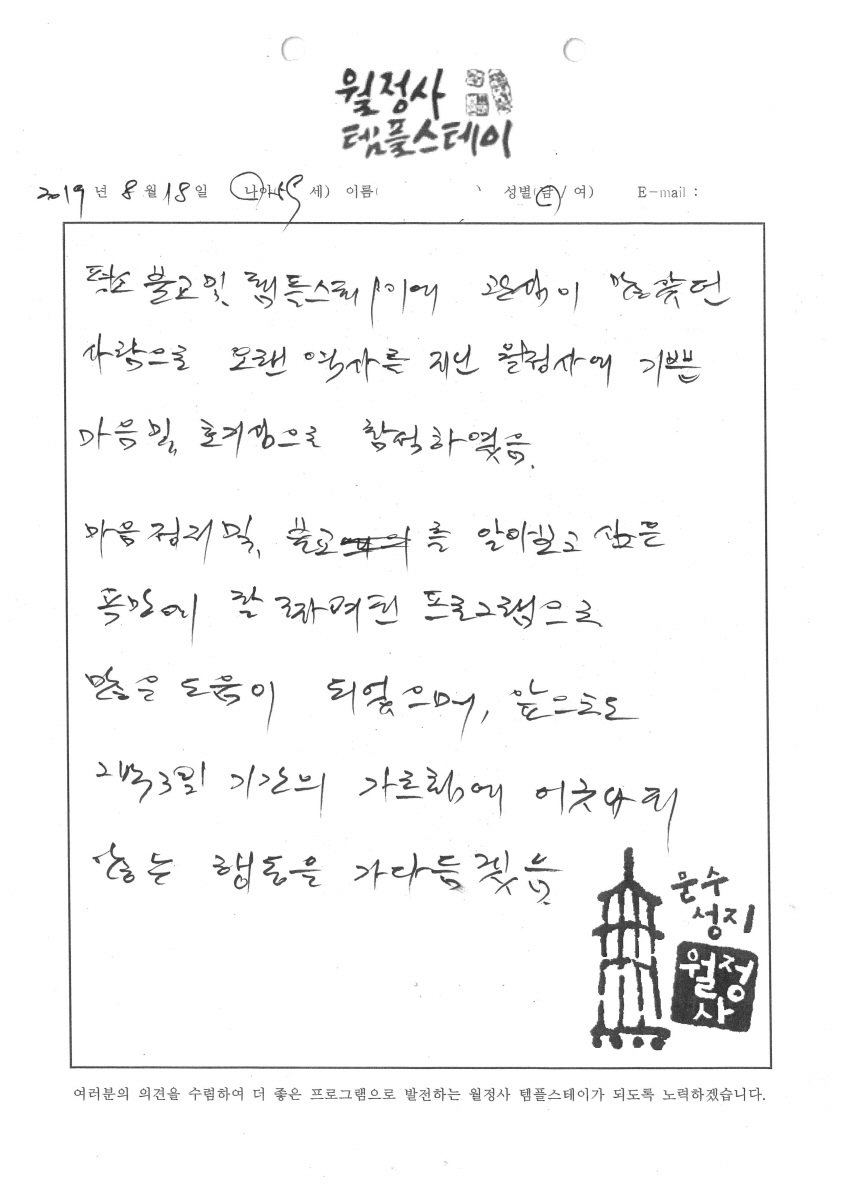 월정사
템플스테이
2019 년 8 월 18 일 나이( 세) 이름( ) 성별(남/여) E-mail :
평소 불교 및 템플스테이에 관심이 많을 갖던
사람으로 오랜 역사를 지닌 월정사에 기쁜
마음 및 호기심으로 참석하였음.
마음정리 및 불교를 알아보고 싶은
욕망에 잘 짜여진 프로그램으로
많은 도움이 되었으며, 앞으로도
2박3일 기간의 가르침에 어긋나지
않는 행동을 가다듬겠음.
문수
성지
월정
사
여러분의 의견을 수렴하여 더 좋은 프로그램으로 발전하는 월정사 템플스테이가 되도록 노력하겠습니다.